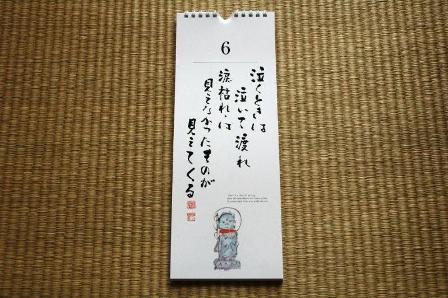 6
泣くときは
泣いて渡れ
涙枯れゝば
見えなかったものが
見えてくる